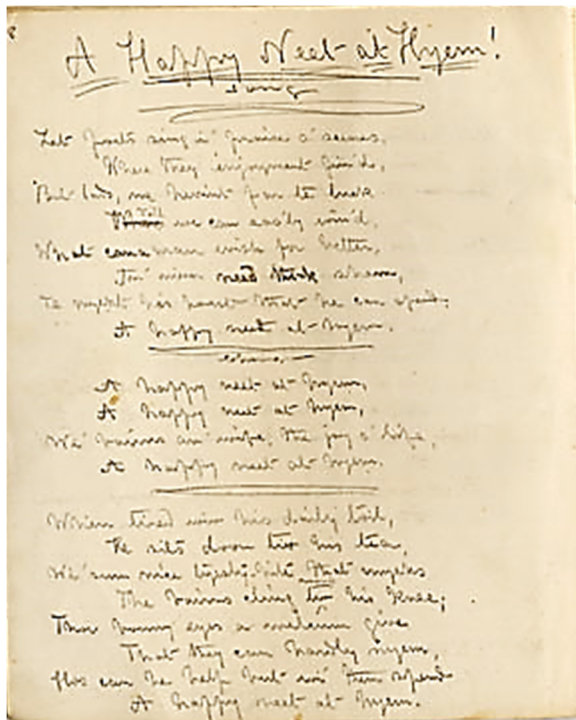 A Happy Neet at Hyem!
Song
Let poets sing i' praise o' scenes,
Where they enjoyment find,
But lads, we havint far te luck
we can easily wind,
What can a man wish for better,
Thor nivor need think shem,
Te myek his heart that he can spend
A happy neet at hyem.
Chorus
A happy neet at hyem,
A happy neet at hyem,
Wi' bairns an' wife, the joy o' life,
A happy neet at hyem.
When tired wiv his daily toil,
He sits doon tiv his tea,
Wi' sum nice that myeks
The bairns cling tiv his knee;
Thor bonny eyes a welcium give
That they can hardly
Hoo can he help but wi' them spend
A happy neet at hyem.